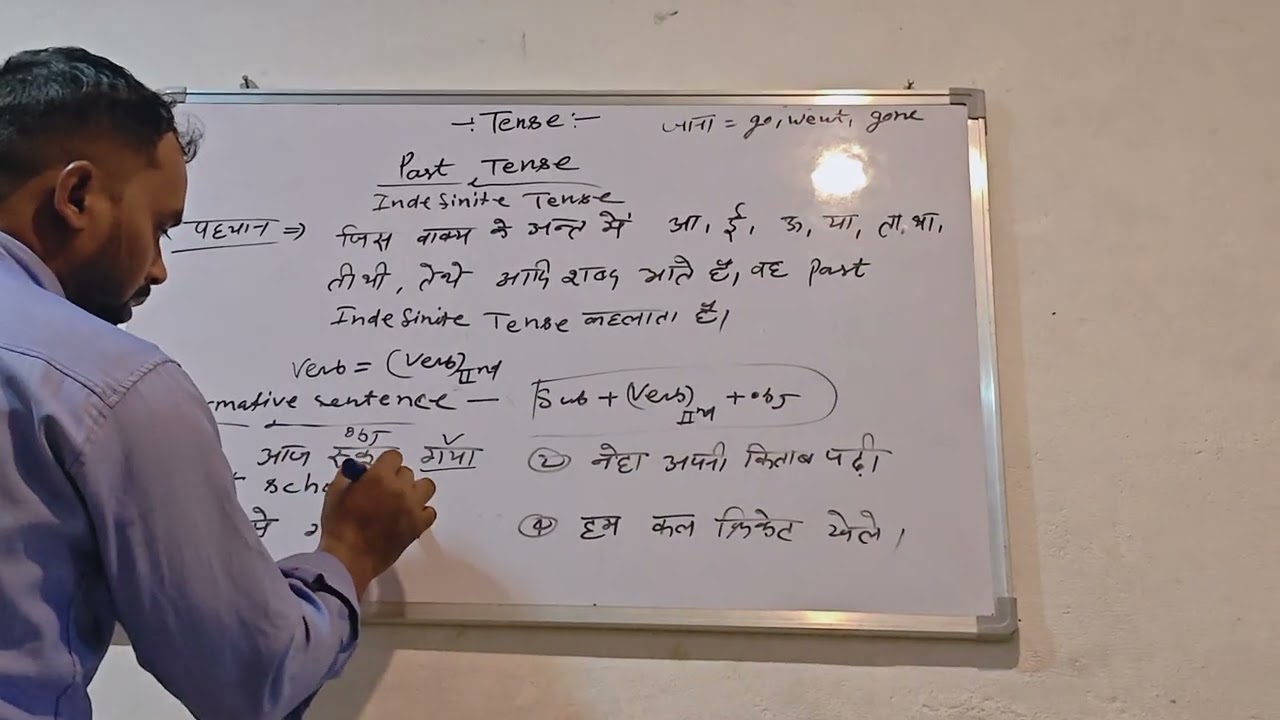 -: Tense :-
जाना = go, went, gone
Past Tense
Indefinite Tense
पहचान ⇒ जिस वाक्य के अन्त में आ, ई, ऊ, या, ता था,
ती थी, ते थे आदि शब्द आते हैं, वह Past
Indefinite Tense कहलाता है।
Verb = (Verb)IInd
sentence — Sub + (Verb)IInd + obj
obj V
आज गया
② नेहा अपनी किताब पढ़ी
④ हम कल क्रिकेट खेले।